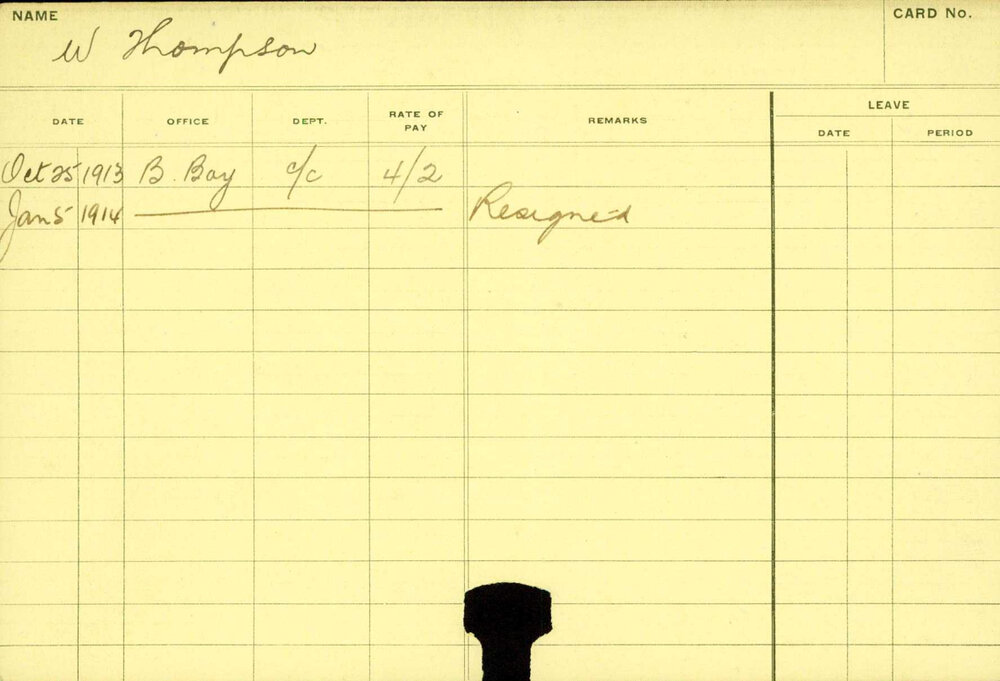 NAME
CARD No.
W Thompson
DATE OFFICE DEPT. RATE OF PAY REMARKS LEAVE
DATE PERIOD
Oct 25 1913 B. Bay c/c 4/2
Jan 5 1914 Resigned